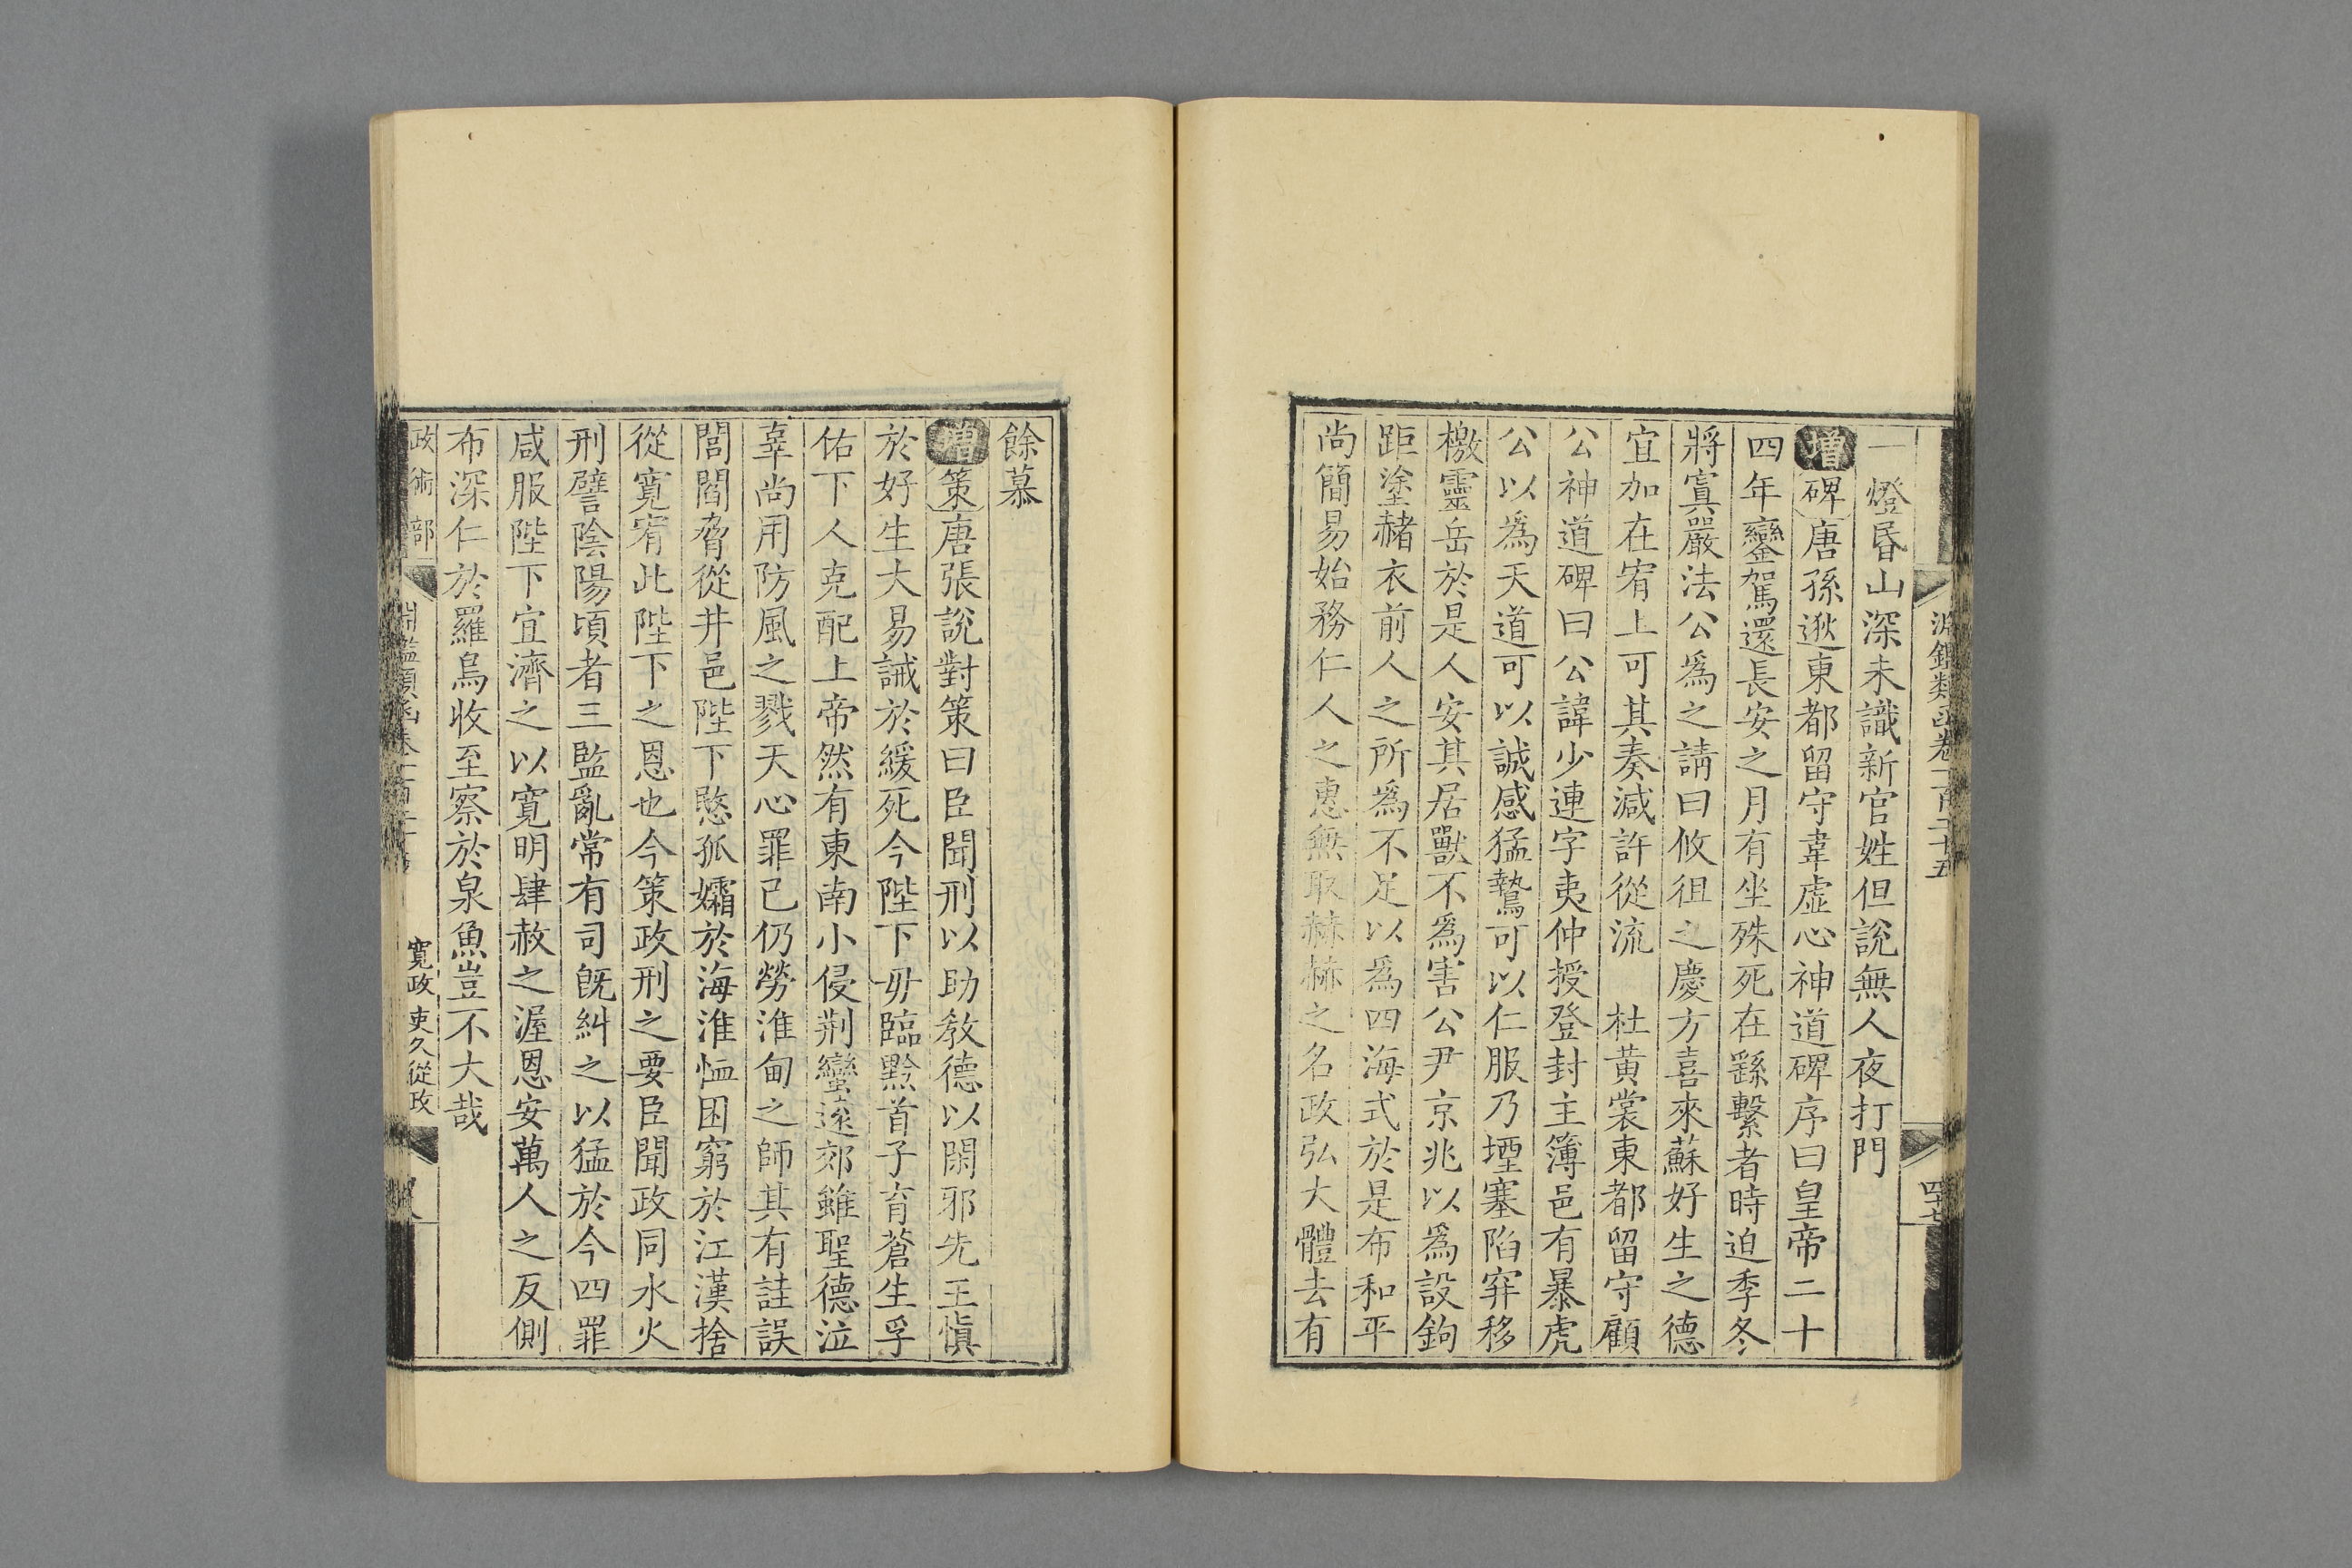 淵鑑類函卷一百二十五
四十七
一燈昏山深未識新官姓但說無人夜打門
增碑唐孫逖東都留守韋虛心神道碑序曰皇帝二十
四年鑾駕還長安之月有坐殊死在繇繫者時迫季冬
將寘嚴法公爲之請曰攸徂之慶方喜來蘇好生之德
宜加在宥上可其奏減許從流　杜黃裳東都留守顧
公神道碑曰公諱少連字夷仲授登封主簿邑有暴虎
公以爲天道可以誠感猛鷙可以仁服乃堙塞陷穽移
檄靈岳於是人安其居獸不爲害公尹京兆以爲設鉤
距塗赭衣前人之所爲不足以爲四海式於是布和平
尚簡易始務仁人之惠無取赫赫之名政弘大體去有
餘慕
增策唐張說對策曰臣聞刑以助教德以閑邪先王愼
於好生大易誡於緩死今陛下毋臨黔首子育蒼生孚
佑下人克配上帝然有東南小侵荆蠻遠郊雖聖德泣
辜尚用防風之戮天心罪已仍勞淮甸之師其有詿誤
閭閻脅從井邑陛下愍孤孀於海淮恤困窮於江漢捨
從寬宥此陛下之恩也今策政刑之要臣聞政同水火
刑譬陰陽頃者三監亂常有司旣糾之以猛於今四罪
咸服陛下宜濟之以寬明肆赦之渥恩安萬人之反側
布深仁於羅鳥收至察於泉魚豈不大哉
政術部
淵鑑類函卷一百二十
寬政　吏久從政